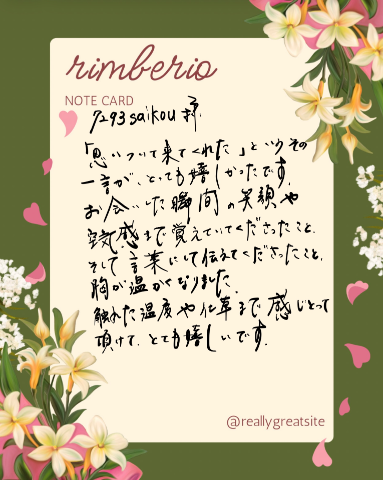 rimberio
NOTE CARD
7293saikou様
「思いついて来てくれた」というその
一言が、とても嬉しかったです。
お会いした瞬間の笑顔や
感まで覚えていてくださったこと、
そして言葉にして伝えてくださったこと、
胸が温かくなりました。
触れた温度や仕草まで感じとって
頂けて、とても嬉しいです。
@reallygreatsite